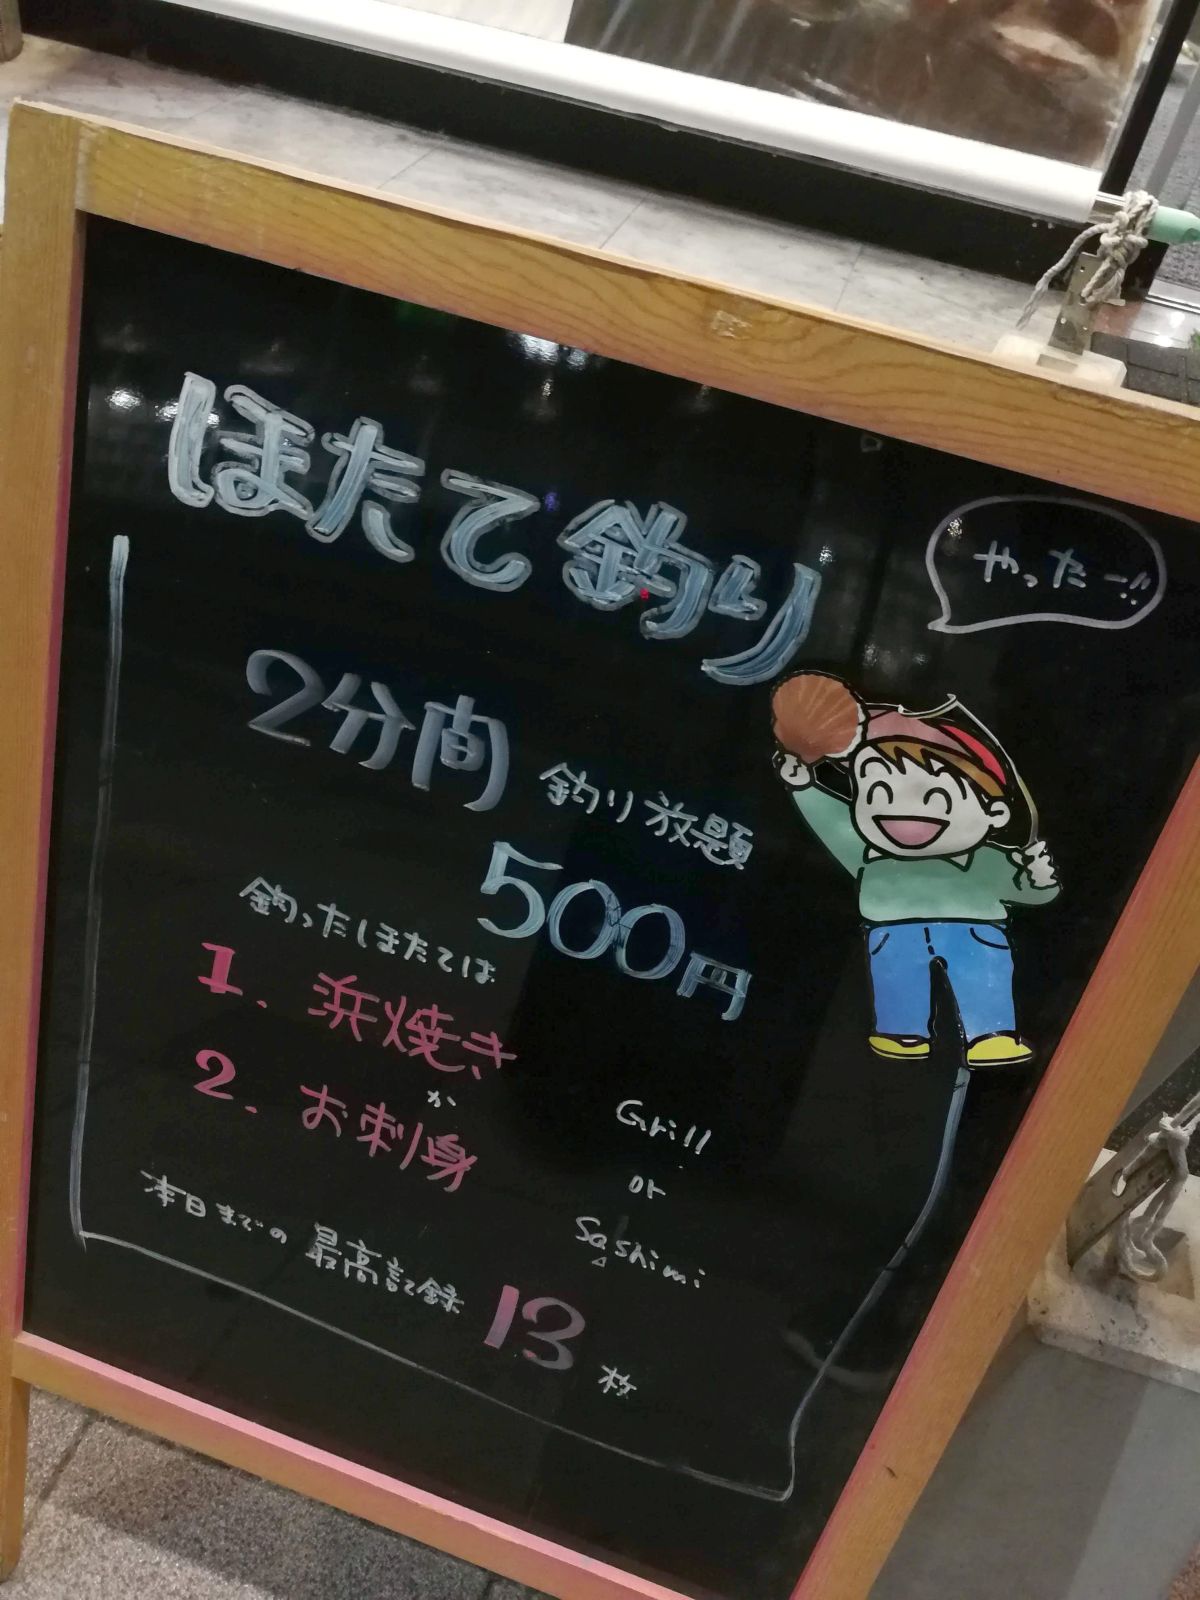 ほたて釣り
やったー!!
2分間 釣り放題
500円
釣ったほたては
1. 浜焼き
か
2. お刺身
Grill
or
Sashimi
本日までの 最高記録 13 枚